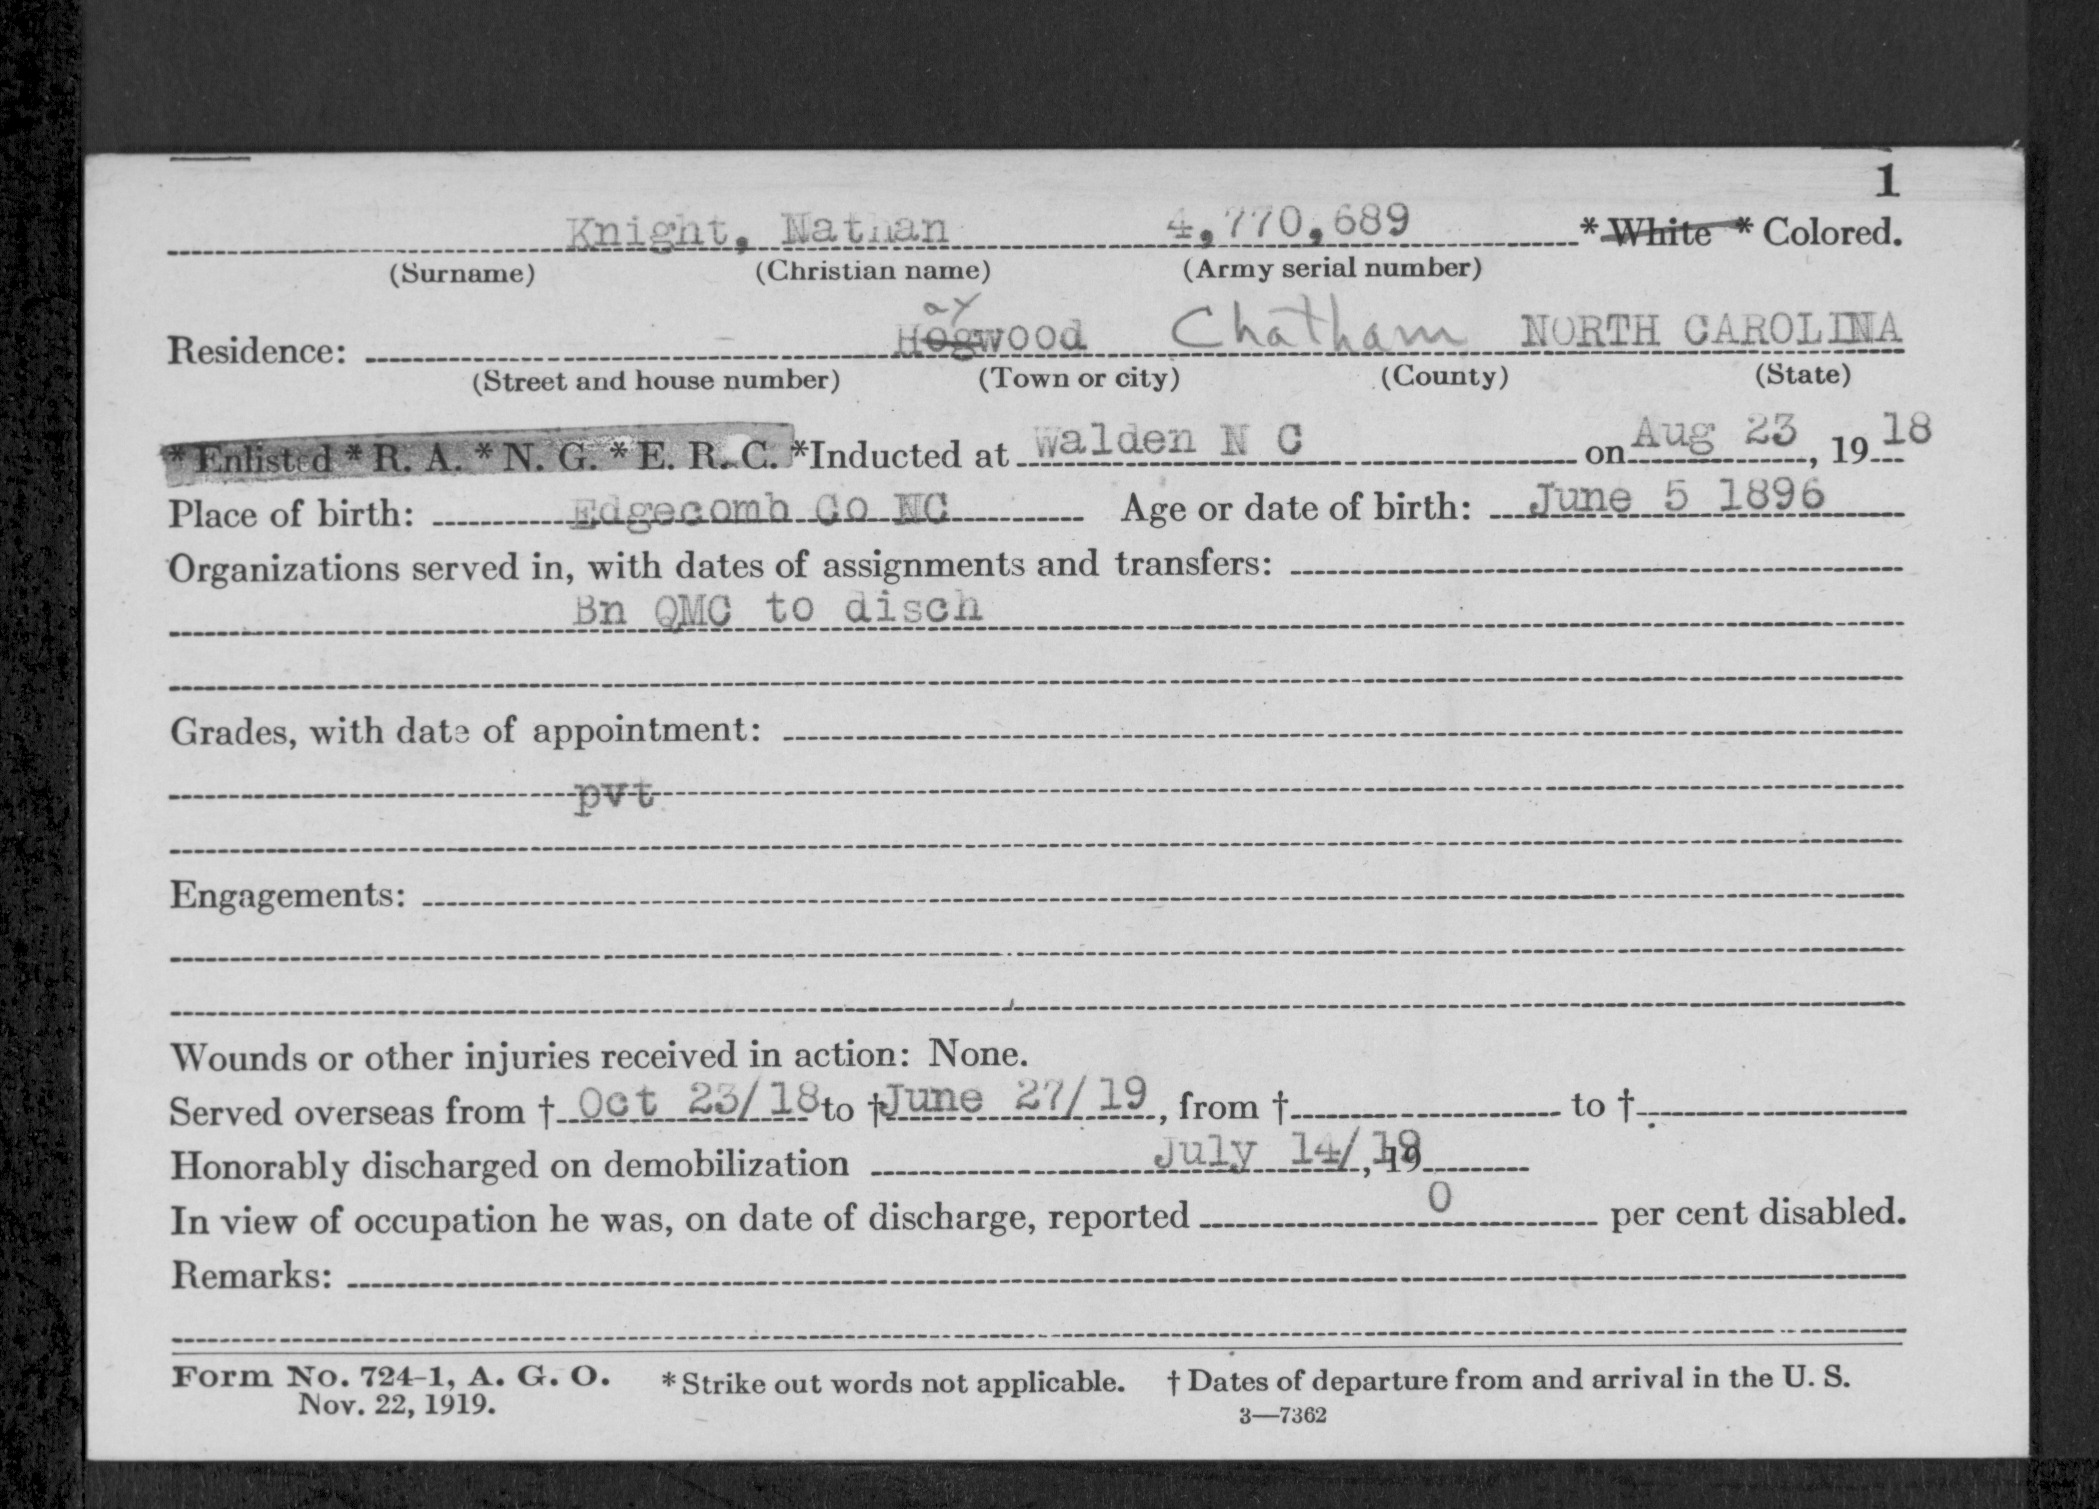 1
Knight, Nathan 4,770,689 * White * Colored.
(Surname) (Christian name) (Army serial number)
ay
Residence: Hogwood Chatham NORTH CAROLINA
(Street and house number) (Town or city) (County) (State)
* Enlisted * R. A. * N. G. * E. R. C. *Inducted at Walden N C on Aug 23, 19 18
Place of birth: Edgecomb Co NC Age or date of birth: June 5 1896
Organizations served in, with dates of assignments and transfers:
Bn QMC to disch
Grades, with date of appointment:
pvt
Engagements:
Wounds or other injuries received in action: None.
Served overseas from † Oct 23/18 to † June 27/19, from † to †
Honorably discharged on demobilization July 14/19, 19
In view of occupation he was, on date of discharge, reported 0 per cent disabled.
Remarks:
Form No. 724-1, A. G. O. * Strike out words not applicable. † Dates of departure from and arrival in the U. S.
Nov. 22, 1919. 3—7362